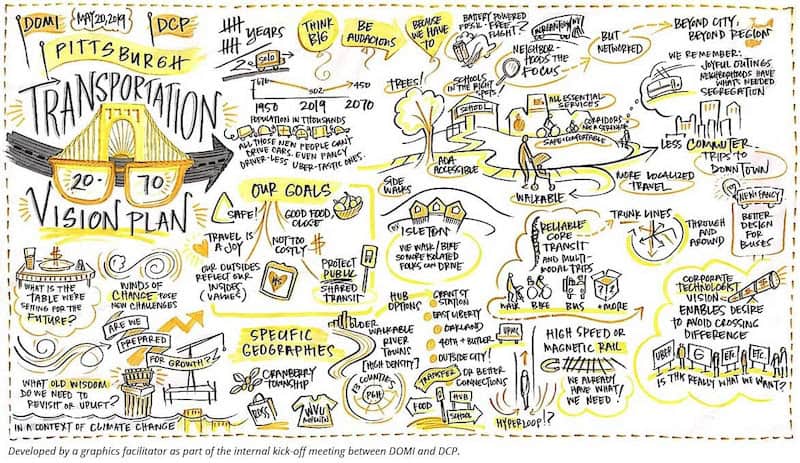 DOMI
MAY 20, 2019
DCP
PITTSBURGH
TRANSPORTATION
20-70
VISION PLAN
WHAT IS THE
TABLE WE'RE
SETTING FOR THE
FUTURE?
WINDS OF
CHANGE TOSE
NEW CHALLENGES
ARE WE
PREPARED
FOR GROWTH?
WHAT OLD WISDOM
DO WE NEED TO
REVISIT OR UPLIFT?
IN A CONTEXT OF CLIMATE CHANGE
YEARS
SOLO
676
302
450
1950 2019 2070
POPULATION IN THOUSANDS
ALL THOSE NEW PEOPLE CAN'T
DRIVE CARS. EVEN FANCY
DRIVER-LESS UBER-TASTIC ONES.
THINK
BIG
BE
AUDACIOUS
BECAUSE
WE HAVE
TO
OUR GOALS
SAFE!
GOOD FOOD,
CLOSE
TRAVEL IS
A JOY
NOT TOO
COSTLY
$
OUR OUTSIDES
REFLECT OUR
INSIDES
(VALUES)
PROTECT
PUBLIC
SHARED
TRANSIT
BATTERY POWERED
FREE FLIGHT?
NEIGHBOR-
HOODS THE
FOCUS
BUT
NETWORKED
BEYOND CITY,
BEYOND REGION
WE REMEMBER:
JOYFUL OUTINGS,
NEIGHBORHOODS HAVE
WHAT'S NEEDED
SEGREGATION
TREES!
SCHOOLS
IN THE RIGHT
SPOT
SCHOOL
ALL ESSENTIAL
SERVICES
CORRIDORS
SAFE + COMFORTABLE
ADA
ACCESSIBLE
SIDE
WALKS
WALKABLE
MORE LOCALIZED
TRAVEL
LESS COMMUTER
TRIPS TO
DOWNTOWN
ISLETON
WE WALK / BIKE
SO MORE ISOLATED
FOLKS CAN DRIVE
RELIABLE
CORE
TRANSIT
AND MULTI-
MODAL TRIPS
WALK BIKE BUS + MORE
TRUNK LINES
THROUGH
AND
AROUND
NEW! FANCY!
BETTER
DESIGN
FOR
BUSES
SPECIFIC
GEOGRAPHIES
CRANBERRY
TOWNSHIP
WVU
OLDER
WALKABLE
RIVER
TOWNS
[HIGH DENSITY]
COUNTIES
PGH
HUB
OPTIONS
GRANT ST
STATION
EAST LIBERTY
OAKLAND
40TH + BUTLER
OUTSIDE CITY!
TRANSFER OR BETTER
CONNECTIONS
FOOD
HUB
SCHOOL
UPMC
HYPERLOOP!?
HIGH SPEED OR
MAGNETIC RAIL
WE ALREADY
HAVE WHAT
WE NEED!
CORPORATE
TECHNOLOGIST
VISION
ENABLES DESIRE
TO AVOID CROSSING
DIFFERENCE
UBER
G
ETC.
ETC.
IS THIS REALLY WHAT WE WANT?
Developed by a graphics facilitator as part of the internal kick-off meeting between DOMI and DCP.